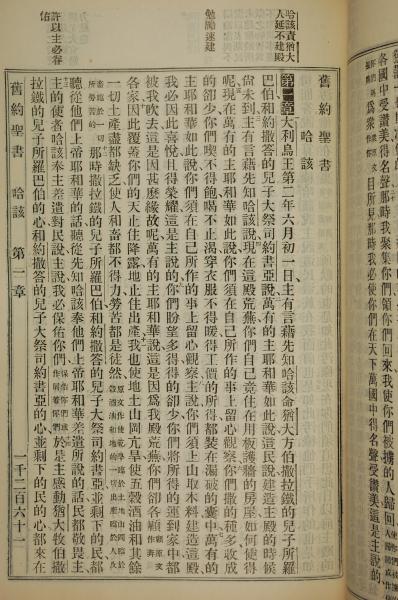 各國中受讚美得名聲那時我聚集你們領你們
目所見那時我必使你們在天下萬國中得名聲受讚美這是主說的
哈該責猶大
人延不建殿
勉勵速建
許以主必眷
佑
舊約聖書
哈該
第一章大利烏王第二年六月初一日主有言藉先知哈該命猶大方伯撒拉鐵的兒子所羅
巴伯和約撒答的兒子大祭司約書亞說萬有的主耶和華如此說這民說建主殿的時候
尚未到主有言藉先知哈該說現在這殿荒蕪你們自己竟住在用板護牆的房屋如何使得
呢現在萬有的主耶和華如此說你們須在自己所作的事上留心觀察你們撒的種多收成
的卻少你們喫不得飽喝不止渴穿衣服不得暖得工價的所得都裝在漏破的囊中萬有的
主耶和華如此說你們須在自己所作的事上留心觀察主說你們須上山取木料建造這殿
我必因此喜悅且得榮耀這是主說的你們盼望多得的卻少你們將所得的運到家中都
被我吹去這是因甚麼緣故呢萬有的主耶和華說這是因爲我殿荒蕪你們卻各顧
一家因此覆蓋你們的天止住降露地止住出產我也使地土山岡亢旱使五穀酒油和其餘
一切土產盡都缺乏使人和畜都不得力勞苦都是徒然
那時撒拉鐵的兒子所羅巴伯和約撒答的兒子大祭司約書亞並剩下的民都
聽從他們上帝耶和華的話聽從先知哈該奉他們上帝耶和華差遣所說的話民都敬畏主
主的使者哈該奉主差遣對民說主說我必保佑你們於是主感動猶大牧伯撒
拉鐵的兒子所羅巴伯的心和約撒答的兒子大祭司約書亞的心並剩下的民的心都來在
舊約聖書 哈該 第一章 一千二百六十一